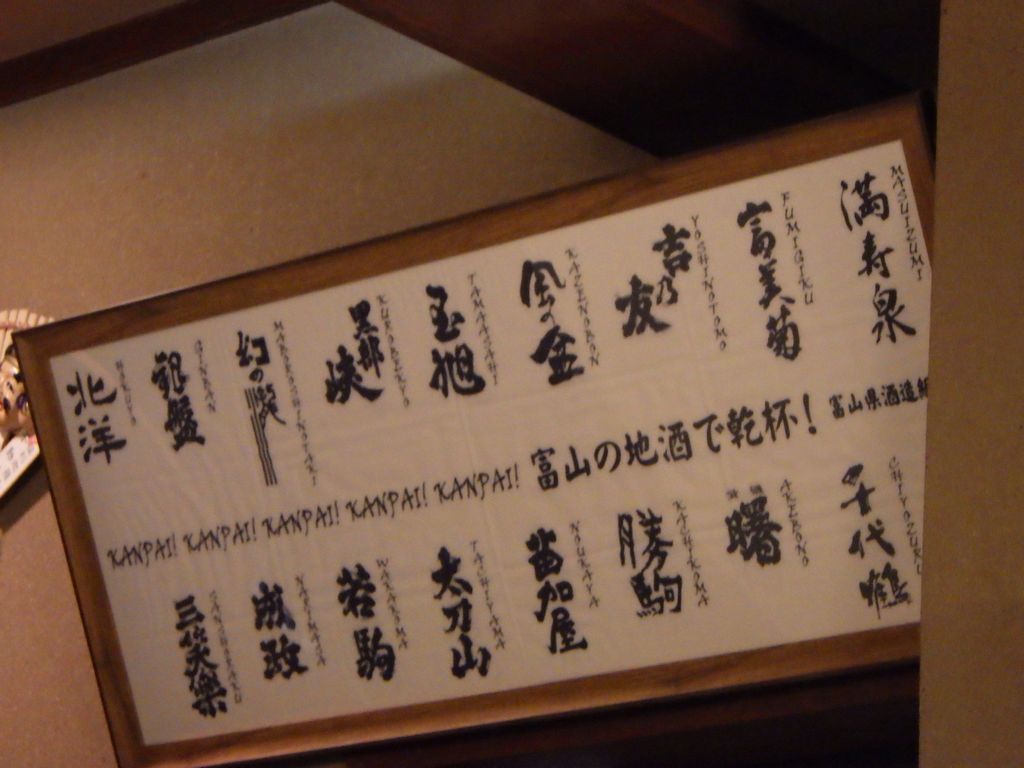 満寿泉 MASUIZUMI
富美菊 FUMIGIKU
吉乃友 YOSHINOTOMO
風の盆 KAZENOBON
玉旭 TAMAASAHI
黒部峡 KUROBEKYO
幻の瀧 MABOROSHINOTAKI
銀盤 GINBAN
北洋 HOKUYO
KANPAI! KANPAI! KANPAI! KANPAI! KANPAI! 富山の地酒で乾杯! 富山県酒造組
千代鶴 CHIYOZURU
曙 AKEBONO
勝駒 KACHIKOMA
苗加屋 NOUKAYA
太刀山 TACHIYAMA
若駒 WAKAKOMA
成政 NARIMASA
三笑楽 SANSHORAKU